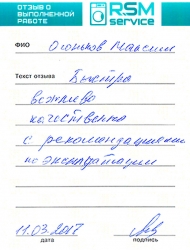 ОТЗЫВ О
ВЫПОЛНЕННОЙ
РАБОТЕ
RSM
service
ФИО Огоньков Максим
Текст отзыва Быстро
вежливо
качественно
с рекомендациями
по эксплуатации
11.03.2017
дата подпись